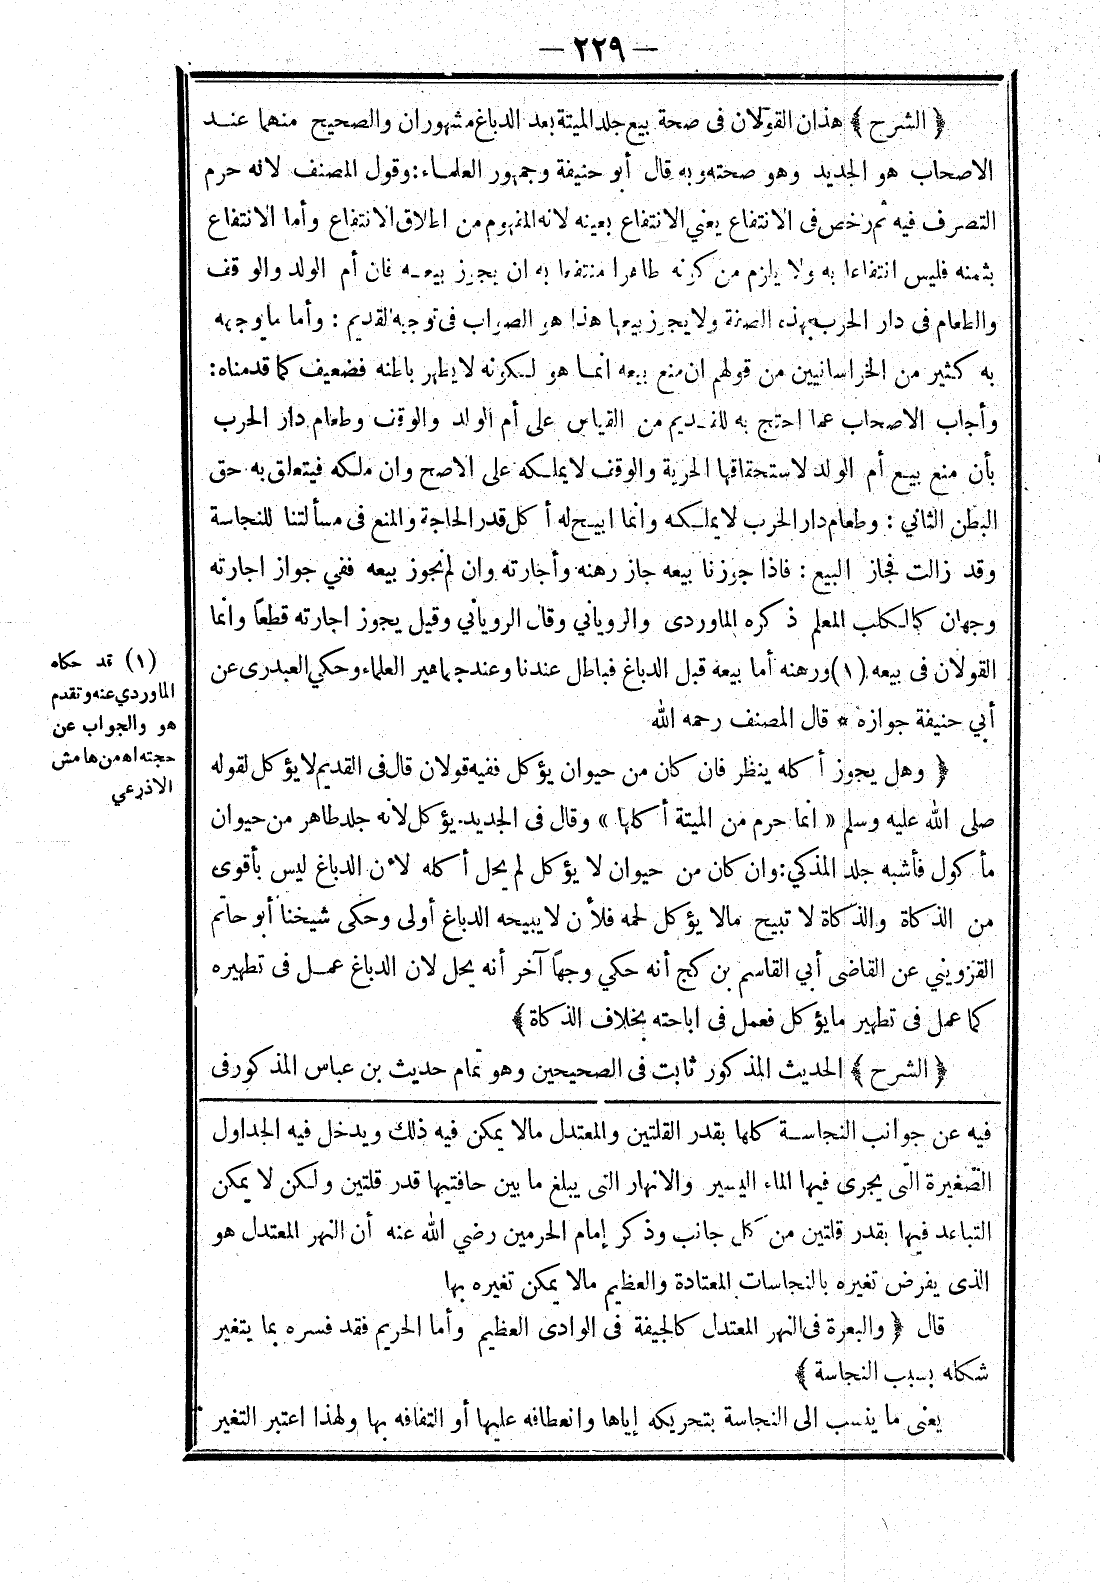 — ٢٢٩ —
﴿ الشرح ﴾ هذان القولان فى صحة بيع جلد الميتة بعد الدباغ مشهوران والصحيح منهما عنــد
الاصحاب هو الجديد وهو صحته وبه قال أبو حنيفة وجمهور العلمـاء : وقول المصنف لانه حرم
التصرف فيه ثم رخص فى الانتفاع يعني الانتفاع بعينه لانه المفهوم من اطلاق الانتفاع وأما الانتفاع
بثمنه فليس انتفاعا به ولا يلزم من كونه طاهرا منتفعا به ان يجوز بيعــه فان أم الولد والوقف
والطعام فى دار الحرب بهذه الصفة ولا يجوز بيعها هذا هو الصواب فى توجيه القديم : وأما ما وجهه
به كثير من الخراسانيين من قولهم ان منع بيعه انمـا هو لـكونه لا يطهر باطنه فضعيف كما قدمناه :
وأجاب الاصحاب عما احتج به للقـديم من القياس على أم الولد والوقف وطعام دار الحرب
بأن منع بيـع أم الولد لاستحقاقها الحرية والوقف لا يملـكه على الاصح وان ملكه فيتعلق به حق
البطن الثاني : وطعام دار الحرب لا يملـكـه وانما ابيـح له أكل قدر الحاجة والمنع فى مسألتنا للنجاسة
وقد زالت فجاز البيع : فاذا جوزنا بيعه جاز رهنه وأجارته وان لم نجوز بيعه ففي جواز اجارته
وجهان كالـكلب المعلم ذكره الماوردى والروياني وقال الروياني وقيل يجوز اجارته قطعًا وانما
القولان فى بيعه (١) ورهنه أما بيعه قبل الدباغ فباطل عندنا وعند جماهير العلماء وحكي العبدرى عن
أبي حنيفة جوازه * قال المصنف رحمه الله
﴿ وهل يجوز أكله ينظر فان كان من حيوان يؤكل ففيه قولان قال فى القديم لا يؤكل لقوله
صلى الله عليه وسلم « انما حرم من الميتة أكلها » وقال فى الجديد يؤكل لانه جلد طاهر من حيوان
مأكول فأشبه جلد المذكي : وان كان من حيوان لا يؤكل لم يحل أكله لأن الدباغ ليس بأقوى
من الذكاة والذكاة لا تبيح مالا يؤكل لحمه فلأن لا يبيحه الدباغ أولى وحكى شيخنا أبو حاتم
القزويني عن القاضى أبي القاسم بن كج أنه حكي وجهًا آخر أنه يحل لان الدباغ عمـل فى تطهيره
كما عمل فى تطهير ما يؤكل فعمل فى اباحته بخلاف الذكاة ﴾
﴿ الشرح ﴾ الحديث المذكور ثابت فى الصحيحين وهو تمام حديث بن عباس المذكور فى
(١) قد حكاه
الماوردي عنه وتقدم
هو والجواب عن
حجته اه من هامش
الاذرعي
فيه عن جوانب النجاسـة كلها بقدر القلتين والمعتدل مالا يمكن فيه ذلك ويدخل فيه الجداول
الصغيرة التى يجرى فيها الماء اليسير والانهار التى يبلغ ما بين حافتيها قدر قلتين ولـكن لا يمكن
التباعد فيها بقدر قلتين من كل جانب وذكر إمام الحرمين رضي الله عنه أن النهر المعتدل هو
الذى يفرض تغيره بالنجاسات المعتادة والعظيم مالا يمكن تغيره بها
قال ﴿ والبعرة فى النهر المعتدل كالجيفة فى الوادى العظيم وأما الحريم فقد فسره بما يتغير
شكله بسبب النجاسة ﴾
يعنى ما ينسب الى النجاسة بتحريكه إياها وانعطافه عليها أو التفافه بها ولهذا اعتبر التغير